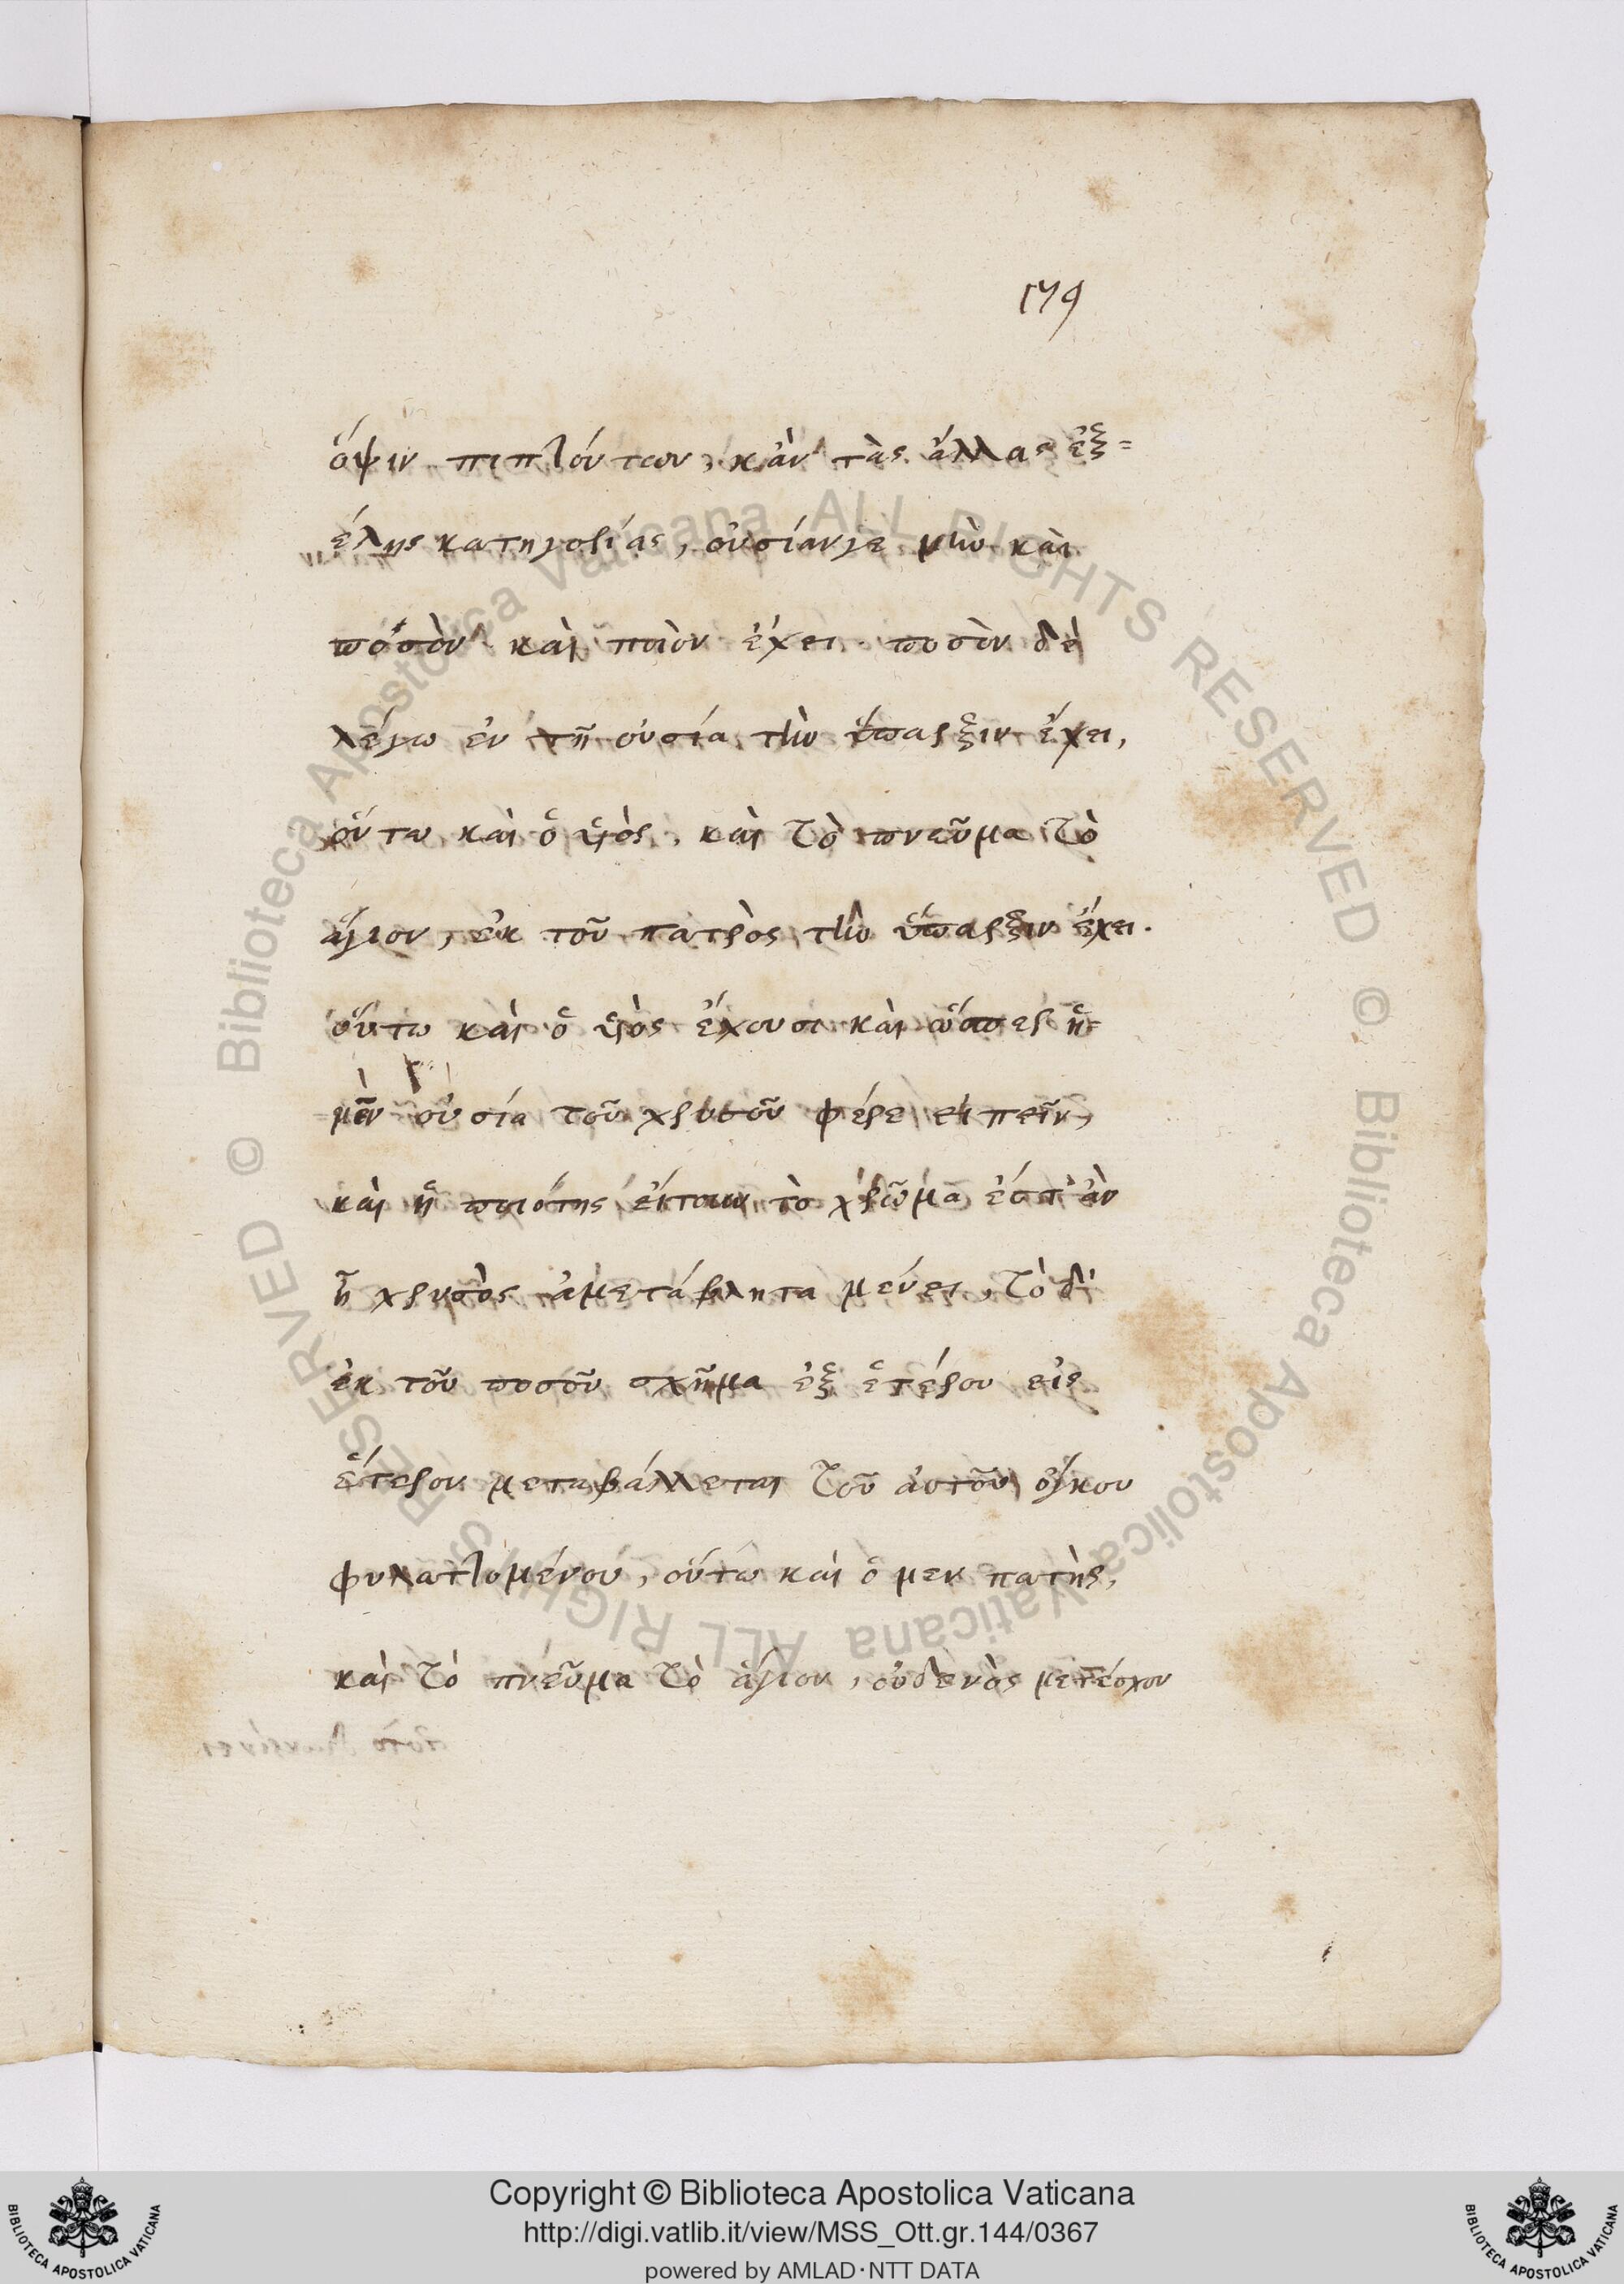 179
ὄψιν πιπτόντων, κἂν τὰς ἄλλας ἐξ=
έλῃς κατηγορίας, οὐσίανγε μὴν καὶ
ποσὸν καὶ ποιὸν ἔχει. ποσὸν δὲ
λέγω ἐν τῆ οὐσία τὴν ὕπαρξιν ἔχει,
οὕτω καὶ ὁ υἱὸς, καὶ τὸ πνεῦμα τὸ
ἅγιον, ἐκ τοῦ πατρὸς τὴν ὕπαρξιν ἔχει.
οὕτω καὶ ὁ υἱὸς ἔχουσι καὶ ὥσπερ ἡ=
μὲν οὐσία τοῦ χρυσοῦ φέρε εἰπεῖν,
καὶ ἡ ποιότης τὸ χρῶμα ἔστ' ἂν
ᾖ χρυσὸς ἀμετάβλητα μένει, τὸ δ'
ἐκ τοῦ ποσοῦ σχῆμα ἐξ ἑτέρου εἰς
ἕτερον μεταβάλλεται τοῦ αὐτοῦ ὄγκου
φυλαττομένου, οὕτω καὶ ὁ μεν πατὴρ,
καὶ τὸ πνεῦμα τὸ ἅγιον, οὐδενὸς μετέσχον
Copyright © Biblioteca Apostolica Vaticana
http://digi.vatlib.it/view/MSS_Ott.gr.144/0367
powered by AMLAD·NTT DATA
BIBLIOTECA APOSTOLICA VATICANA
BIBLIOTECA APOSTOLICA VATICANA
© Biblioteca Apostolica Vaticana ALL RIGHTS RESERVED
© Biblioteca Apostolica Vaticana ALL RIGHTS RESERVED